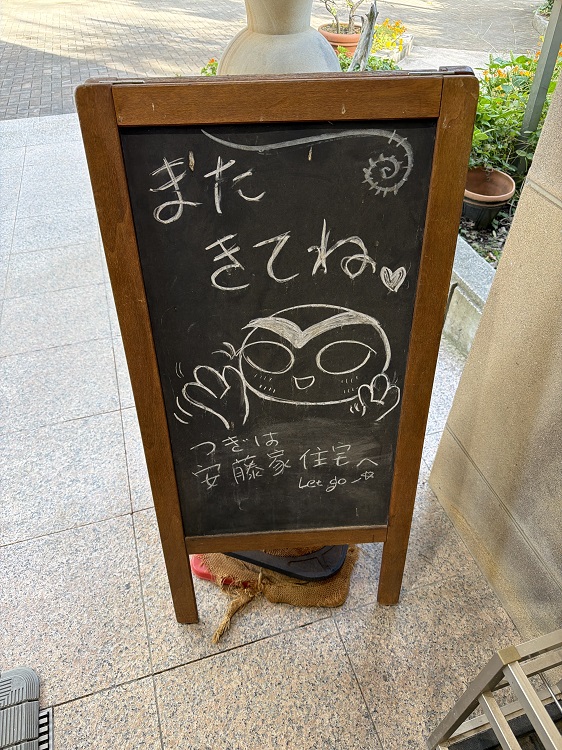 また
きてね
つぎは
安藤家住宅へ
Let go